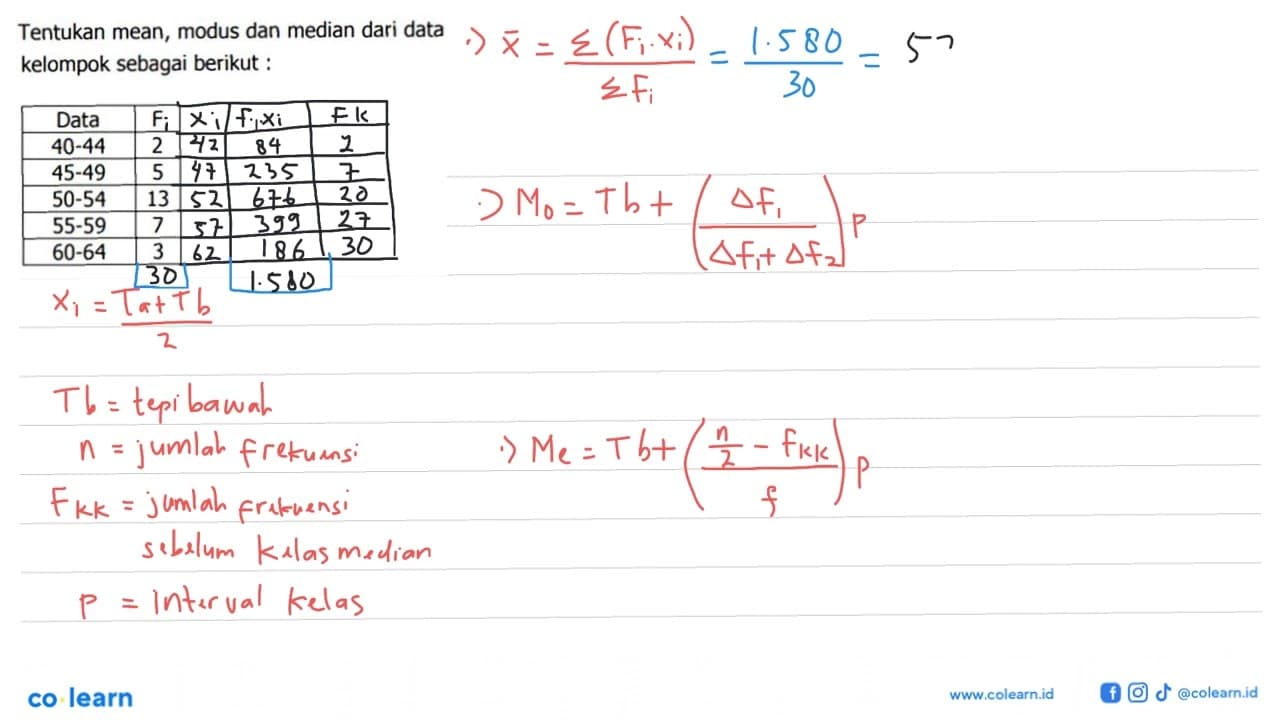 Tentukan mean, modus dan median dari data
kelompok sebagai berikut :
Data Fi xi fi.xi Fk
40-44 2 42 84 2
45-49 5 47 235 7
50-54 13 52 676 20
55-59 7 57 399 27
60-64 3 62 186 30
30 1.580
xi = Ta + Tb / 2
Tb = tepi bawah
n = jumlah frekuensi
Fkk = jumlah frekuensi
sebelum kelas median
p = interval kelas
:) x̄ = Σ(Fi.xi) / ΣFi = 1.580 / 30 = 5
:) Mo = Tb + (Δf1 / Δf1 + Δf2) p
:) Me = Tb + (n/2 - fkk / f) p
co.learn
www.colearn.id @colearn.id